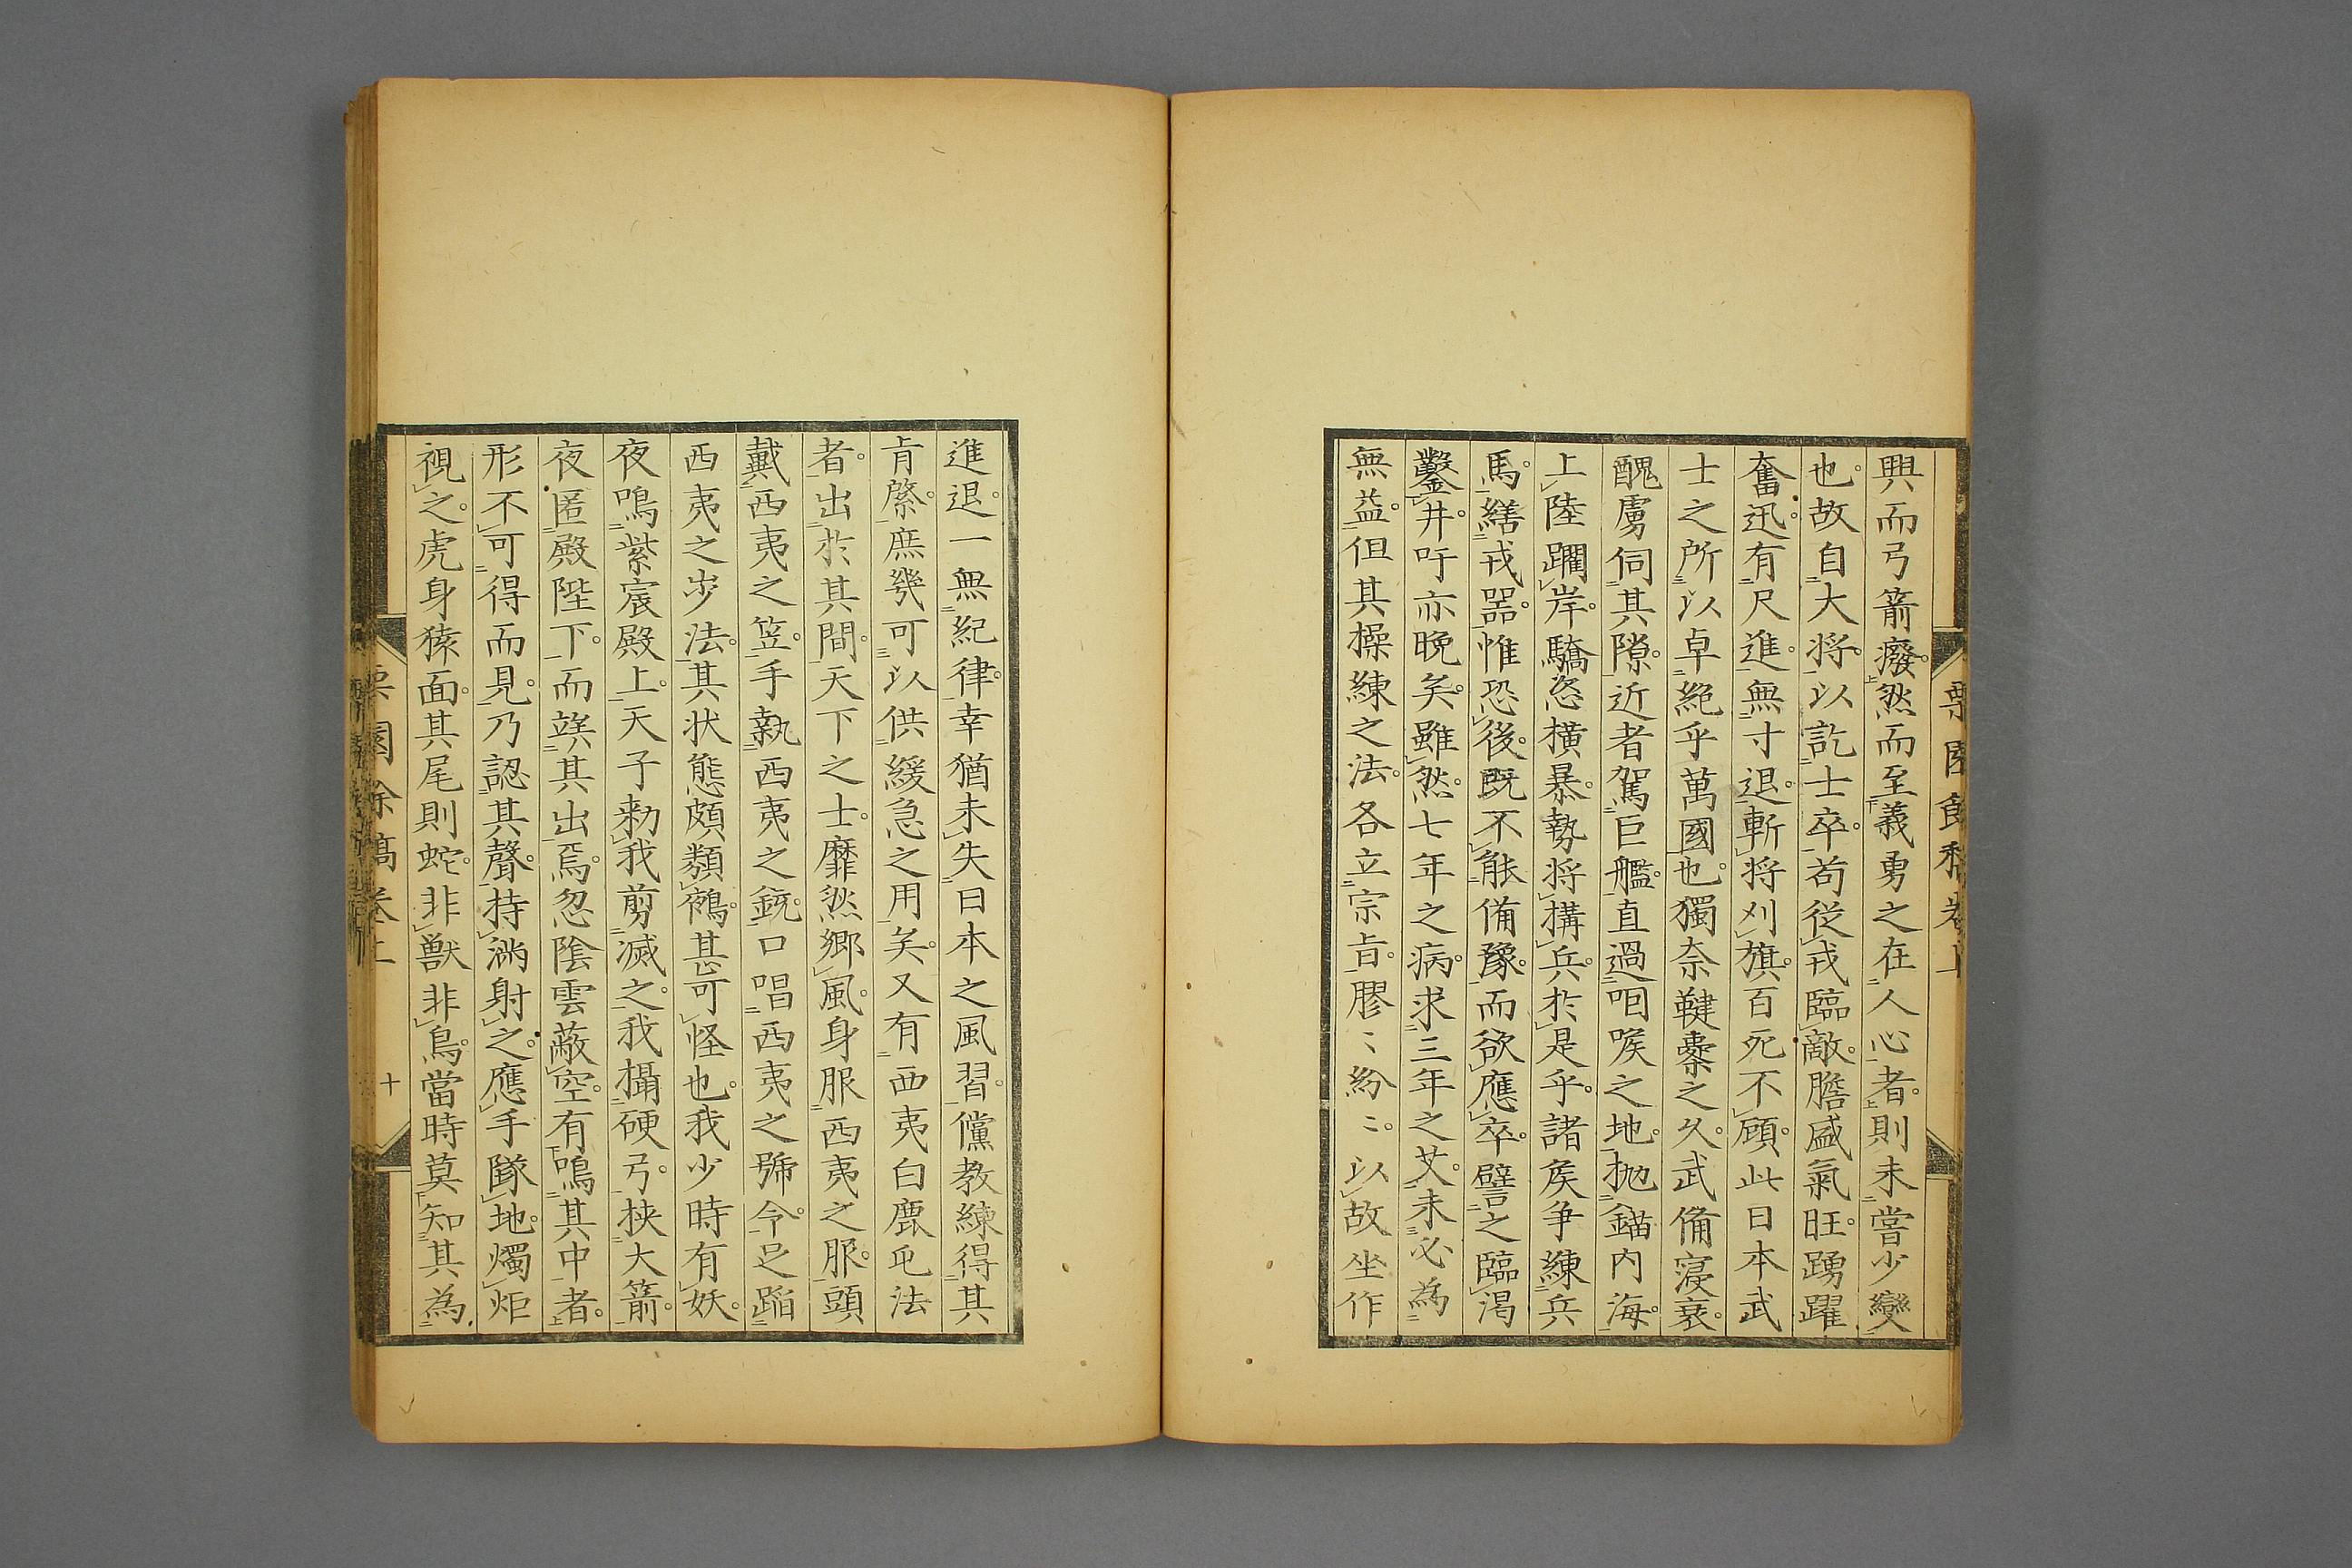 興而弓箭癈。然而至義勇之在人心者。則未嘗少變
也。故自大将。以訖士卒。苟従戎臨敵。膽盛氣旺。踴躍
奮迅。有尺進。無寸退。斬将刈旗。百死不顧。此日本武
士之所以卓絶乎萬國也。獨奈鞬櫜之久。武備寖衰。
醜虜伺其隙。近者駕巨艦。直過咽喉之地。抛錨内海。
上陸躙岸。驕恣横暴。勢将搆兵於是乎。諸矦争練兵
馬。繕戎器。惟恐後。既不能備豫。而欲應卒。譬之臨渇
鑿井。吁亦晩矣。雖然。七年之病。求三年之艾。未必為
無益。但其操練之法。各立宗旨。膠〻紛〻。以故坐作
進退。一無紀律。幸猶未失日本之風習。儻教練得其
肯綮。庶幾可以供緩急之用矣。又有西夷白鹿乕法
者。出於其間。天下之士。靡然郷風。身服西夷之服。頭
戴西夷之笠。手執西夷之銃。口唱西夷之號令。足蹈
西夷之歩法。其状態頗類鵺。甚可怪也。我少時有妖。
夜鳴紫宸殿上。天子勅我剪滅之。我攝硬弓。挟大箭。
夜匿殿陛下。而竢其出焉。忽陰雲蔽空。有鳴其中者。
形不可得而見。乃認其聲。持満射之。應手隊地。燭炬
視之。虎身猿面。其尾則蛇。非獣非鳥。當時莫知其為
栗園餘稿巻上
十